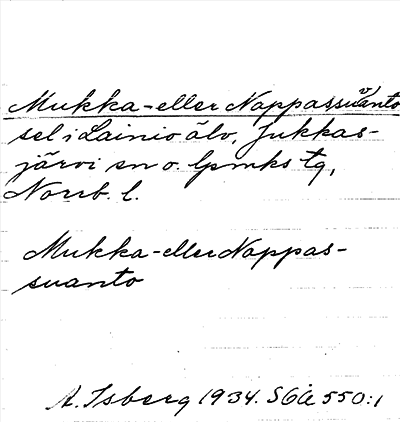 Mukka- eller Nappassu(v)anto
sel i Lainio älv, Jukkas-
järvi sn o. lpmks tg,
Norrb. l.
Mukka- eller Nappas-
suanto
A. Isberg 1934. SOÄ 550:1